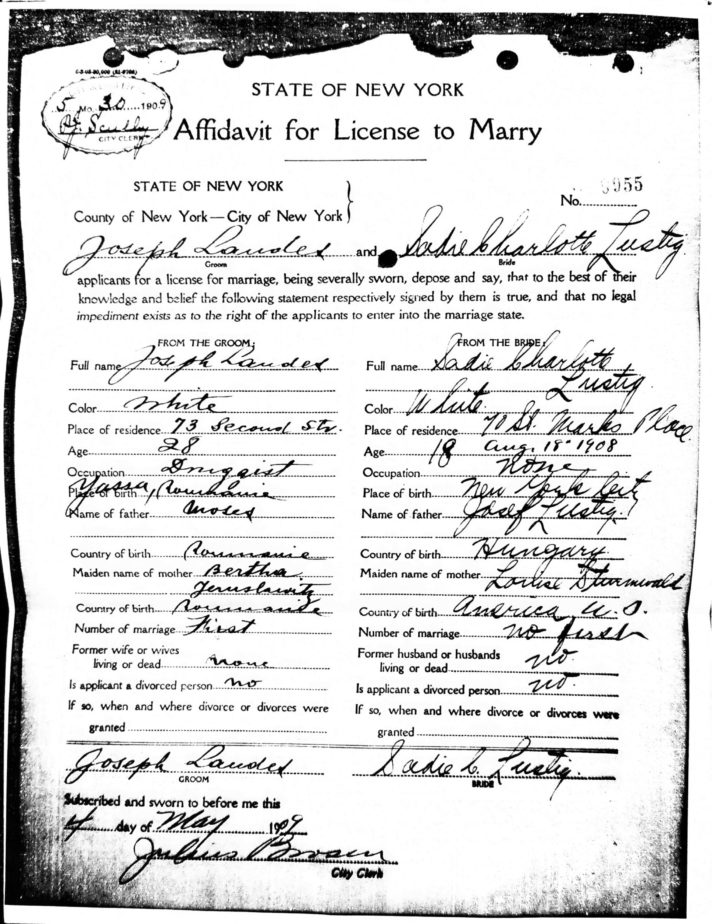 STATE OF NEW YORK
5 Mo. 30 1909
P.J. Scully
CITY CLERK
Affidavit for License to Marry
STATE OF NEW YORK
County of New York—City of New York
No. 9955
Joseph Landes and Sadie Charlotte Lustig
Groom Bride
applicants for a license for marriage, being severally sworn, depose and say, that to the best of their
knowledge and belief the following statement respectively signed by them is true, and that no legal
impediment exists as to the right of the applicants to enter into the marriage state.
FROM THE GROOM:
Full name Joseph Landes
Color White
Place of residence 73 Second Str.
Age 28
Occupation Druggist
Place of birth Yassa, Roumanie
Name of father Moses
Country of birth Roumanie
Maiden name of mother Bertha
Country of birth Roumanie
Number of marriage First
Former wife or wives
living or dead none
Is applicant a divorced person no
If so, when and where divorce or divorces were
granted
FROM THE BRIDE:
Full name Sadie Charlotte
Lustig
Color White
Place of residence 70 St. Marks Place
Age 18 Aug. 18" 1908
Occupation None
Place of birth New York City
Name of father Josef Lustig
Country of birth Hungary
Maiden name of mother Louise Sturmwald
Country of birth America U.S.
Number of marriage no first
Former husband or husbands
living or dead no
Is applicant a divorced person no.
If so, when and where divorce or divorces were
granted
Joseph Landes
GROOM
Sadie C. Lustig.
BRIDE
Subscribed and sworn to before me this
4 day of May 1909
Julius Brosen
City Clerk